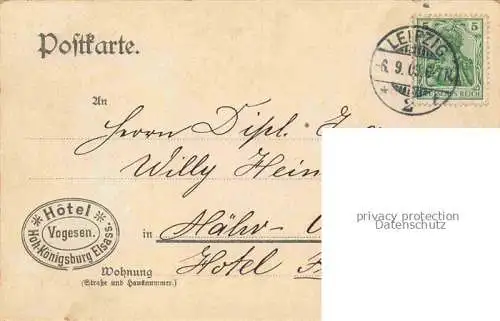 Postkarte.
5
LEIPZIG
6. 9. 0
2
REICH
An
Herrn Dipl.
Willy Hein
Hôtel
Vogesen.
Hoh-Königsburg Elsass.
in Mähr-
Hotel
Wohnung
(Straße und Hausnummer.)
privacy protection
Datenschutz